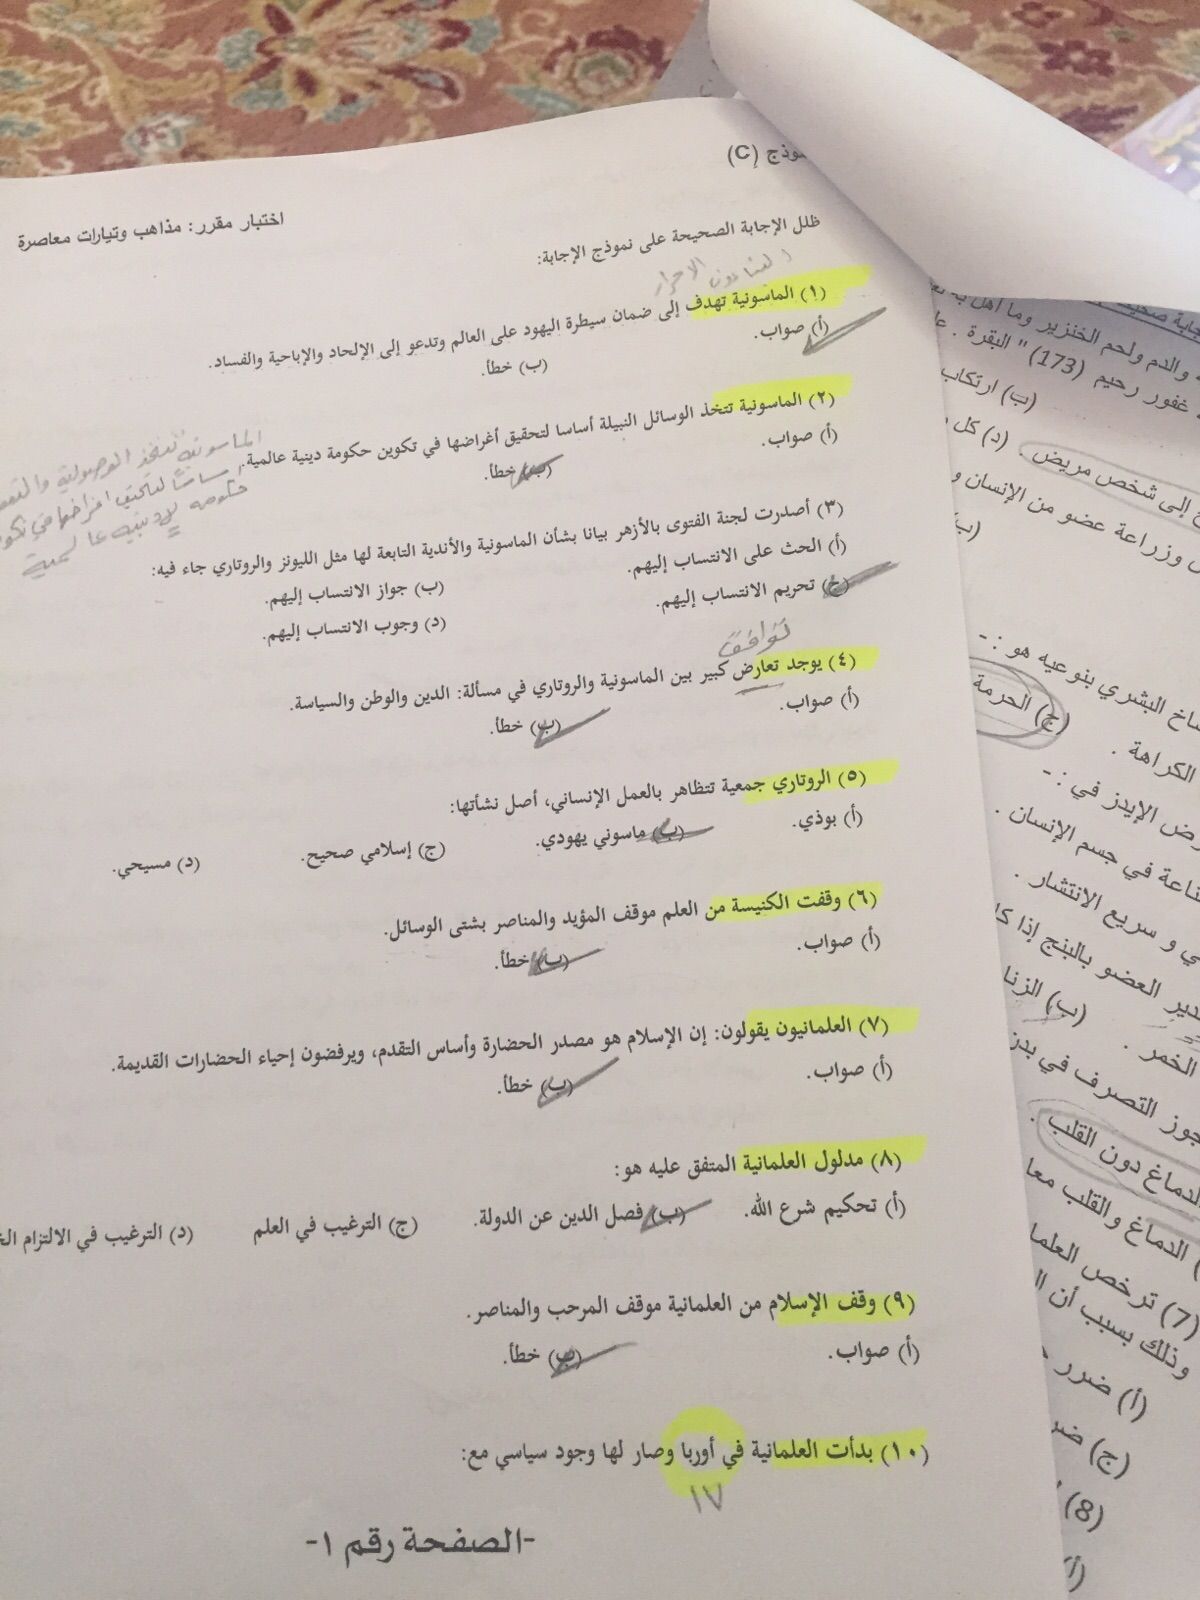 نموذج (C)
اختبار مقرر: مذاهب وتيارات معاصرة
ظلل الإجابة الصحيحة على نموذج الإجابة:
البناءون الاحرار
(١) الماسونية تهدف إلى ضمان سيطرة اليهود على العالم وتدعو إلى الإلحاد والإباحية والفساد.
(أ) صواب.
(ب) خطأ.
(٢) الماسونية تتخذ الوسائل النبيلة أساسا لتحقيق أغراضها في تكوين حكومة دينية عالمية.
(أ) صواب.
(ب) خطأ.
الماسونية تتخذ الوصولية
أساسًا لتحقيق اغراضها في
حكومه لادينيه عالمية
(٣) أصدرت لجنة الفتوى بالأزهر بيانا بشأن الماسونية والأندية التابعة لها مثل الليونز والروتاري جاء فيه:
(أ) الحث على الانتساب إليهم.
(ب) جواز الانتساب إليهم.
(ج) تحريم الانتساب إليهم.
(د) وجوب الانتساب إليهم.
توافق
(٤) يوجد تعارض كبير بين الماسونية والروتاري في مسألة: الدين والوطن والسياسة.
(أ) صواب.
(ب) خطأ.
(٥) الروتاري جمعية تتظاهر بالعمل الإنساني، أصل نشأتها:
(أ) بوذي. (ب) ماسوني يهودي. (ج) إسلامي صحيح. (د) مسيحي.
(٦) وقفت الكنيسة من العلم موقف المؤيد والمناصر بشتى الوسائل.
(أ) صواب.
(ب) خطأ.
(٧) العلمانيون يقولون: إن الإسلام هو مصدر الحضارة وأساس التقدم، ويرفضون إحياء الحضارات القديمة.
(أ) صواب.
(ب) خطأ.
(٨) مدلول العلمانية المتفق عليه هو:
(أ) تحكيم شرع الله. (ب) فصل الدين عن الدولة. (ج) الترغيب في العلم (د) الترغيب في الالتزام
(٩) وقف الإسلام من العلمانية موقف المرحب والمناصر.
(أ) صواب.
(ب) خطأ.
(١٠) بدأت العلمانية في أوربا وصار لها وجود سياسي مع:
١٧
-الصفحة رقم ١-
والدم ولحم الخنزير وما أهل به
غفور رحيم (173) " البقرة .
(ب) ارتكاب
إلى شخص مريض . (د) كل
وزراعة عضو من الإنسان و
(ب)
البشري بنوعيه هو :-
(ج) الحرمة
الكراهة .
الإيدز في :-
في جسم الإنسان .
و سريع الانتشار .
العضو بالبنج إذا
(ب) الزنا
الخمر .
التصرف في
الدماغ دون القلب .
الدماغ والقلب معا
(7) ترخص
وذلك بسبب أن
(أ) ضرر
(ج)
(8)